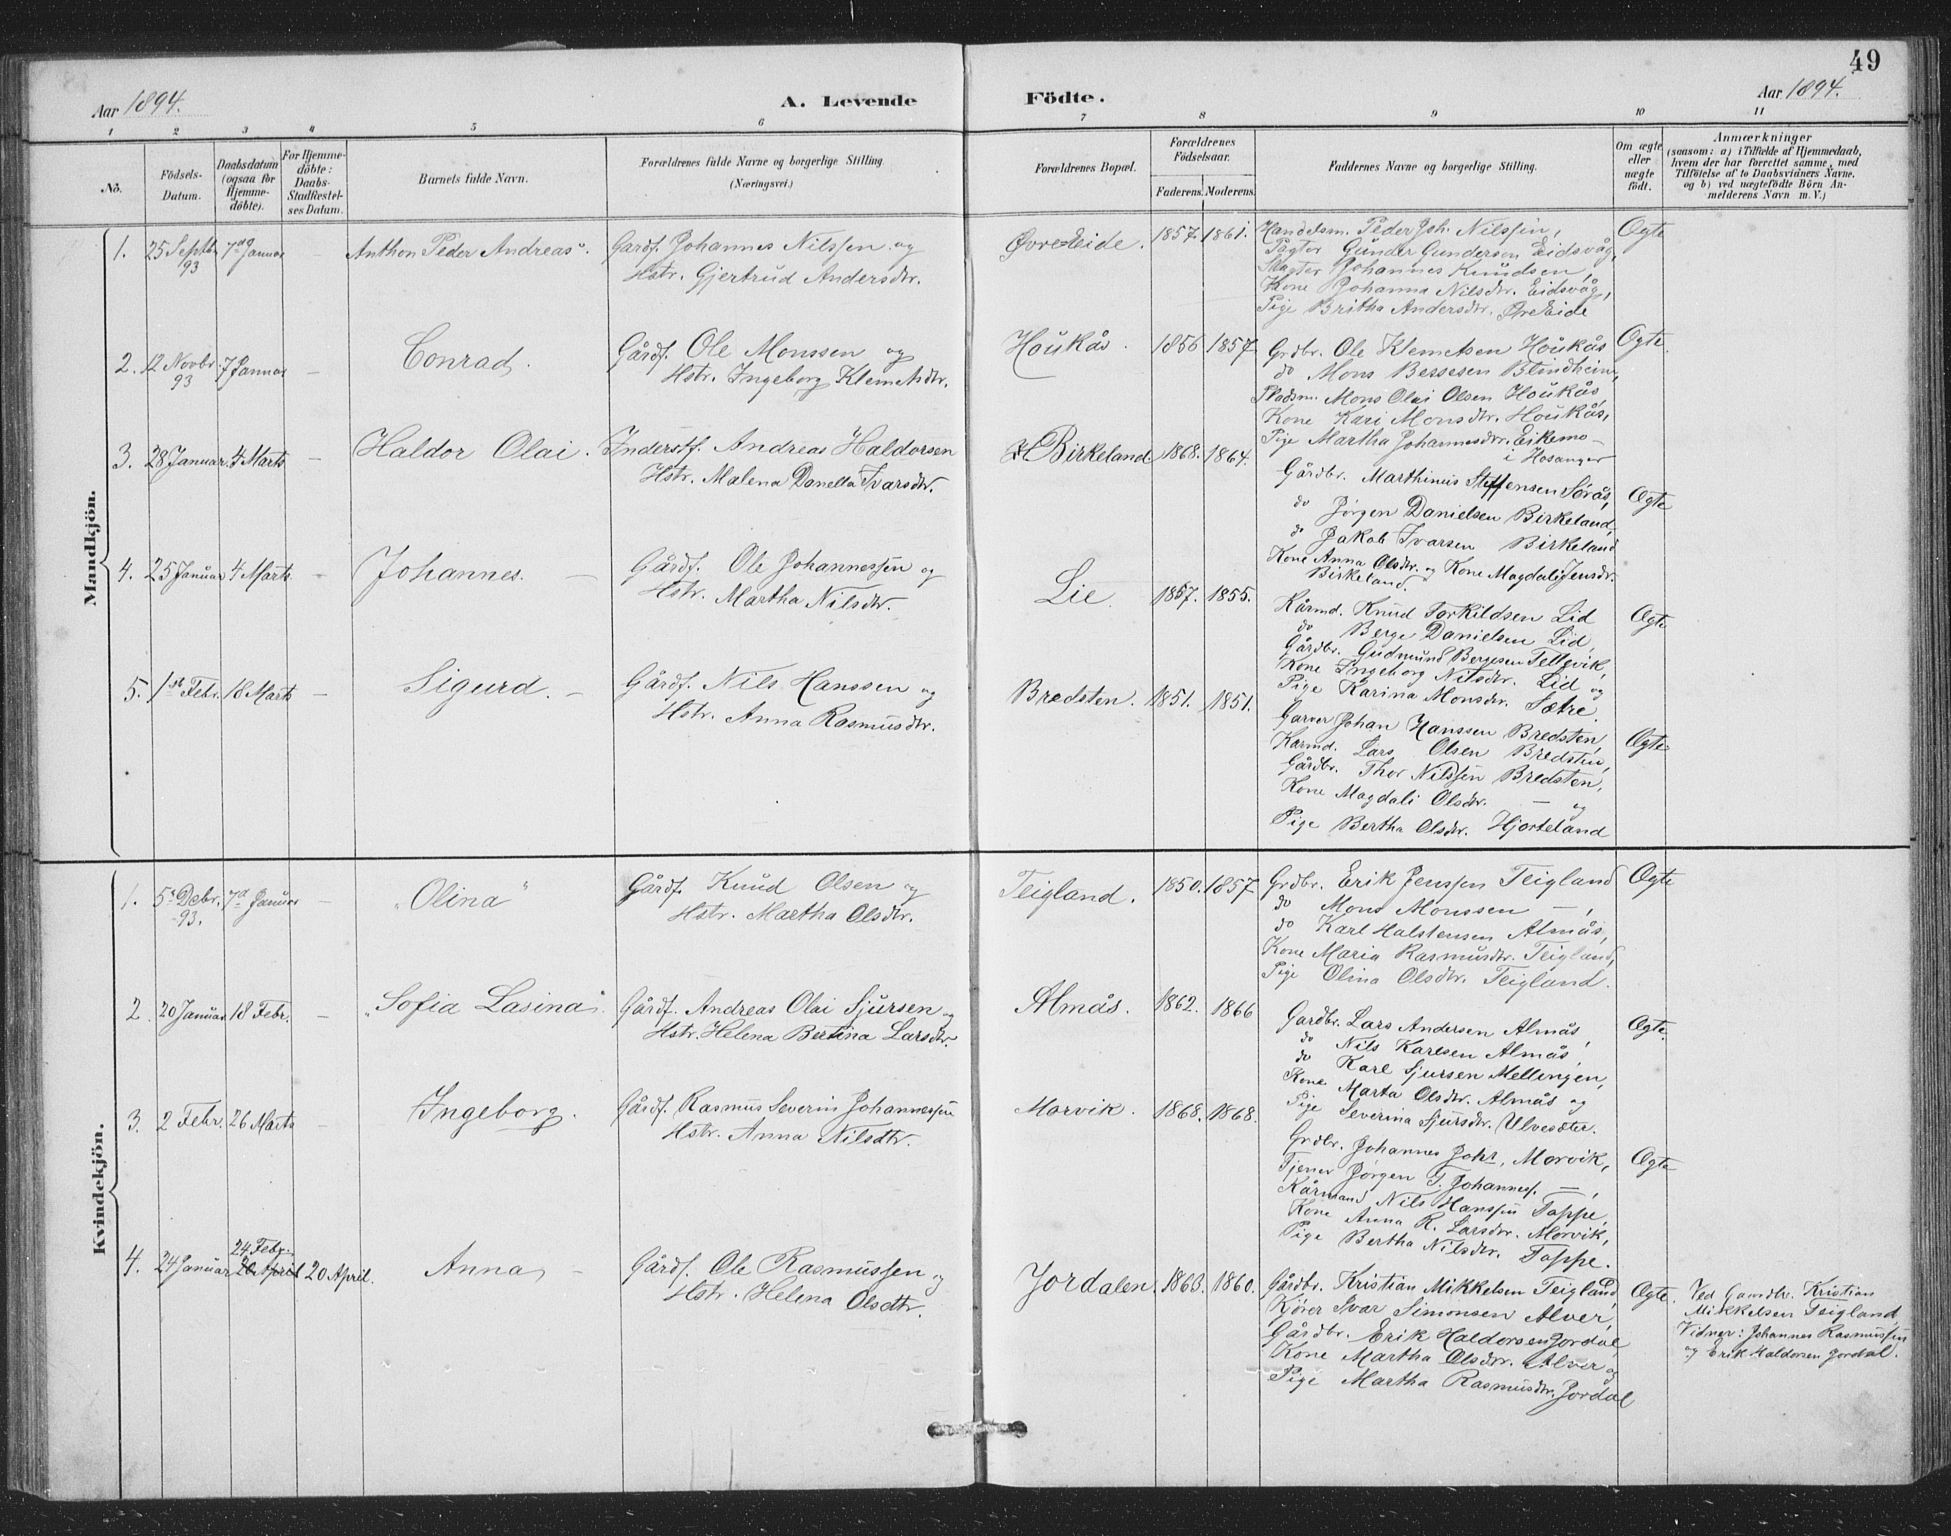 49
Aar 1894.
A. Levende Födte.
Aar 1894.
1 2 3 4 5 6 7 8 9 10 11
No.
Födsels-Datum.
Daabsdatum (ogsaa for Hjemme-döbte).
For Hjemme-döbte: Daabs-Stadfæstel-ses Datum.
Barnets fulde Navn.
Forældrenes fulde Navne og borgerlige Stilling.
(Næringsvei.)
Forældrenes Bopæl.
Forældrenes Födselsaar.
Faderens. Moderens.
Faddernes Navne og borgerlige Stilling.
Om ægte eller uægte födt.
Anmærkninger
(saasom: a) i Tilfælde af Hjemmedaab,
hvem der har forrettet samme, med
Tilföielse af to Daabsvidners Navne.
og b) ved uægtefödte Börn An-
melderens Navn m. V.)
Mandkjön.
1. 25 Septbr. 93 7d Januar – Anthon Peder Andreas". Gardf. Johannes Nilssen og
Hstr. Gjertrud Andersdtr.
Øvre Eide. 1857. 1861.
Handelsm. Peder Joh. Nilssen,
Pagter Gunder Gundersen Eidsvåg,
Slagter Johannes Knudsen,
Kone Johanna Nilsdtr. Eidsvåg,
Pige Britha Andersdtr. Øvre Eide
Ægte
2. 12 Novbr. 93 7 Januar – Conrad. Gårdf. Ole Monssen og
Hstr. Ingeborg Klemetsdtr.
Houkås. 1856 1857
Grdbr. Ole Klemetsen Houkås
do Mons Bersesen Blindheim,
Pladsm. Mons Olai Olsen Houkås,
Kone Kari Monsdtr. Houkås,
Pige Martha Johannesdtr. Eikemo –
i Hosanger
Ægte.
3. 28 Januar. 4 Marts – Haldor Olai. Inderstf. Andreas Haldorsen
Hstr. Malena Danella Ivarsdtr.
Birkeland. 1868. 1864.
Gårdbr. Marthinus Steffensen Sørås,
do Jørgen Danielsen Birkeland,
do Jakob Ivarsen Birkeland
Kone Anna Olsdtr. og Kone Magdali Jensdr.
Birkeland.
Ægte
4. 25 Januar 4 Marts. – Johannes. – Gårdf. Ole Johannessen og
Hstr. Martha Nilsdtr.
Lie. 1857. 1855.
Kårmd. Knud Torkildsen Lid
do Berge Danielsen Lid,
Gårdbr. Gudmund Bergesen Tellevik,
Kone Ingeborg Nilsdtr. Lid og
Pige Karina Monsdtr. Sætre.
Ægte
5. 1ste Febr. 18 Marts – Sigurd. – Gårdf. Nils Hanssen og
Hstr. Anna Rasmusdtr.
Bredsten. 1851. 1851.
Garver Johan Hanssen Bredsten,
Karmd. Lars Olsen Bredsten,
Gårdbr. Thor Nilssen Bredsten,
Kone Magdali Olsdtr. — og
Pige Bertha Olsdtr. Hjorteland
Ægte.
Kvindekjön.
1. 5te Debr. 93. 7d Januar – „Olina" Gårdf. Knud Olsen og
Hstr. Martha Olsdtr.
Teigland. 1850. 1857.
Grdbr. Erik Jenssen Teigland
do Mons Monssen —,
do Karl Halstensen Almås,
Kone Maria Rasmusdtr. Teigland,
Pige Olina Olsdtr. Teigland.
Ægte
2. 20 Januar. 18 Febr. – „Sofia Lasina". Gårdf. Andreas Olai Sjursen og
Hstr. Helena Bertina Larsdtr.
Almås. 1862. 1866
Gardbr. Lars Andersen Almås,
do Nils Karlsen Almås,
do Karl Sjursen Mellingen,
Kone Marta Olsdtr. Almås og
Pige Severina Sjursdtr. Ulvesæter.
Ægte.
3. 2 Febr. 26 Marts – Ingeborg. Gårdf. Rasmus Severin Johannessen
Hstr. Anna Nilsdtr.
Morvik. 1868. 1868.
Grdbr. Johannes Johs, Morvik,
Tjener Jørgen T. Johannes. —,
Kårmand Nils Hanssen Toppe,
Kone Anna R. Larsdtr. Morvik,
Pige Bertha Nilsdtr. Toppe.
Ægte
4. 24 Januar 24 Febr. 20 April 20 April. Anna – Gårdf. Ole Rasmussen og
Hstr. Helena Olsdtr.
Jordalen. 1863. 1860.
Gårdbr. Kristian Mikkelsen Teigland,
Kjører Ivar Simonsen Alver,
Gårdbr. Erik Haldorsen Jordal
Kone Martha Olsdtr. Alver og
Pige Martha Rasmusdtr. Jordal
Ægte.
Ved Gaardbr. Kristian
Mikkelsen Teigland,
Vidner: Johannes Rasmussen
og Erik Haldorsen Jordal.